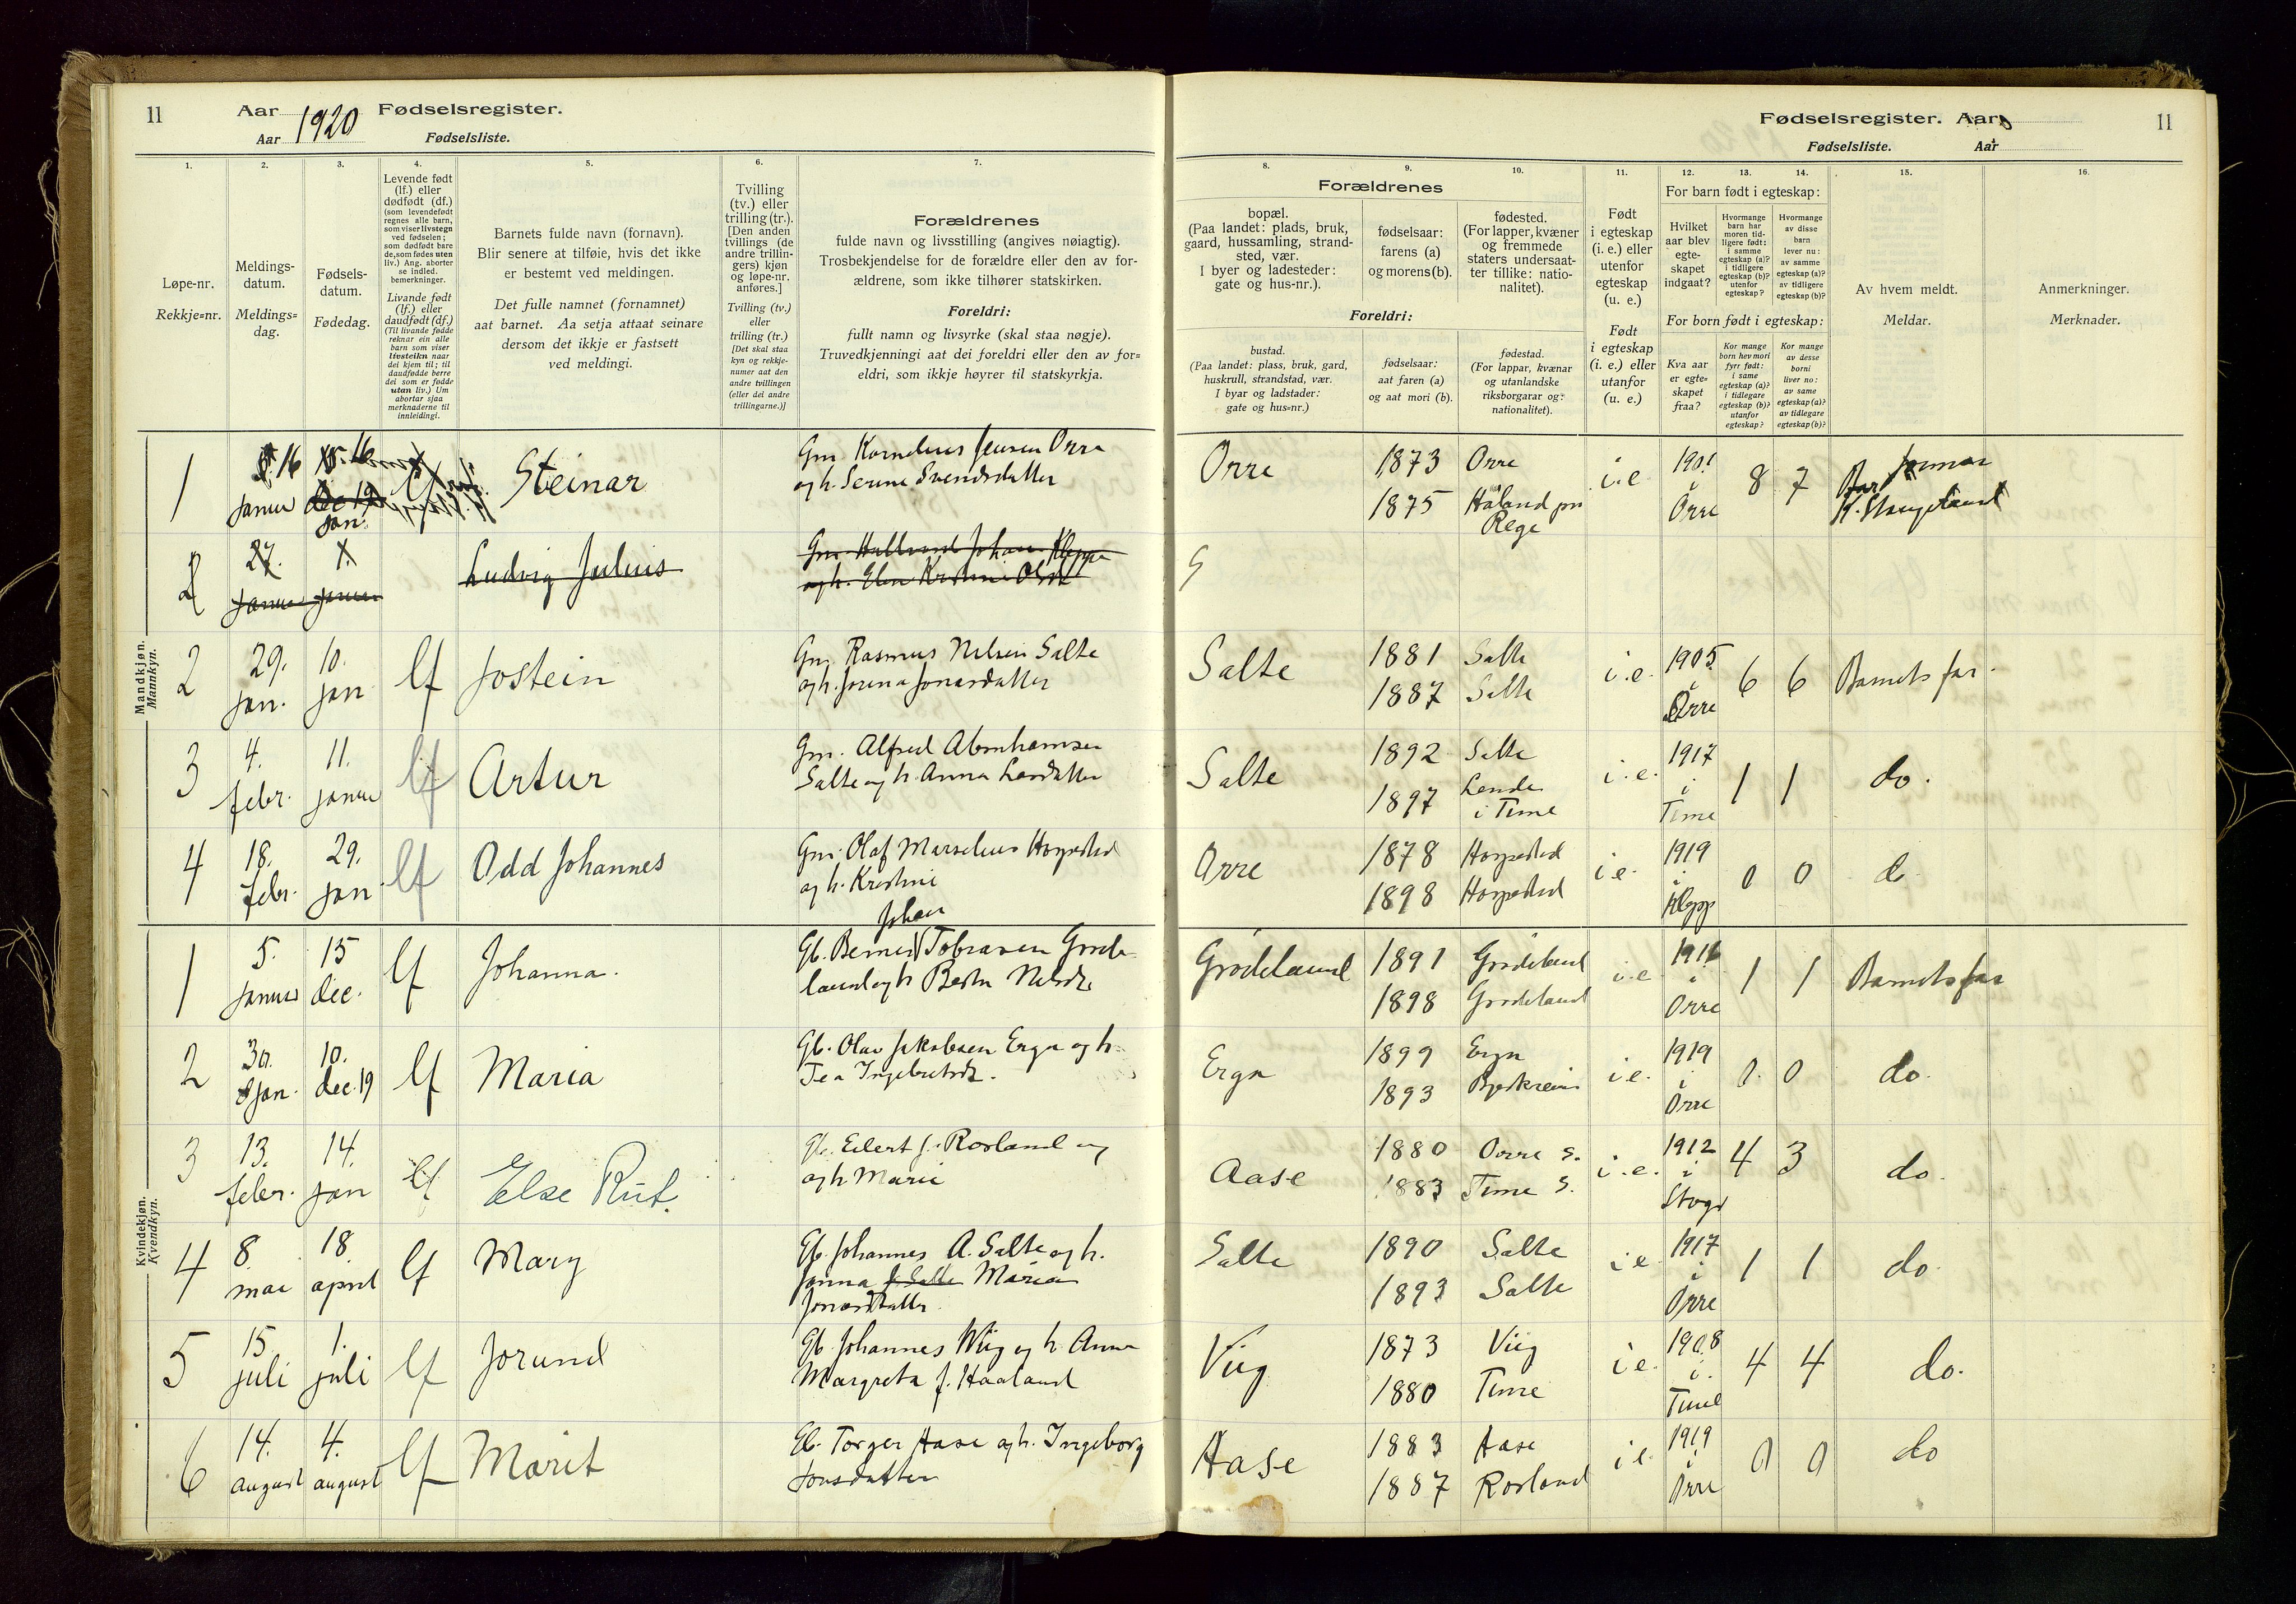 11
Aar 1920 Fødselsregister.
Aar Fødselsliste.
1.
2.
3.
4.
5.
6.
7.
Løpe-nr.
Rekkje=nr.
Meldings-
datum.
Meldings=
dag.
Fødsels-
datum.
Fødedag.
Levende født
(lf.) eller
dødfødt (df.)
(som levendefødt
regnes alle barn,
som viser livstegn
ved fødselen;
som dødfødt bare
de, som fødes uten
liv.) Ang. aborter
se indled.
bemerkninger.
Livande født
(lf.) eller
daudfødt (df.)
(Til livande fødde
reknar ein alle
barn som viser
livsteikn naar
dei kjem til; til
daudfødde berre
dei som er fødde
utan liv.) Um
abortar sjaa
merknaderne til
innleidingi.
Barnets fulde navn (fornavn).
Blir senere at tilføie, hvis det ikke
er bestemt ved meldingen.
Det fulle namnet (fornamnet)
aat barnet. Aa setja attaat seinare
dersom det ikkje er fastsett
ved meldingi.
Tvilling
(tv.) eller
trilling (tr.).
[Den anden
tvillings (de
andre trillin-
gers) kjøn
og løpe-nr.
anføres.]
Tvilling (tv.)
eller
trilling (tr.)
[Det skal staa
kyn og rekkje-
numer aat den
andre tvillingen
(eller dei andre
trillingarne.)]
Forældrenes
fulde navn og livsstilling (angives nøiagtig).
Trosbekjendelse for de forældre eller den av for-
ældrene, som ikke tilhører statskirken.
Foreldri:
fullt namn og livsyrke (skal staa nøgje).
Truvedkjenningi aat dei foreldri eller den av for=
eldri, som ikkje høyrer til statskyrkja.
Mandkjøn.
Mannkyn.
1 16 Januar 16 Jan. Steinar
Gm Kornelius Jensen Orre
og h. Serine Svendsdatter
2 27. Januar 1. Januar Ludvig Julius
2 29. jan. 10. jan lf Jostein
Gm. Rasmus Nilsen Salte
og h. Jorina Jonasdatter
3 4. febr. 11. januar lf Artur
Gm. Alfred Abrahamsen
Salte og h. Anna Larsdatter
4 18. febr. 29. jan lf Odd Johannes
Gm. Olaf Marselius Horpestad
og h. Kristine
Kvindekjøn.
Kvendkyn.
1 5. januar 15 dec. lf Johanna.
Johan
2 30. jan. 10. dec. 19 lf Maria
Gb. Olav Jakobsen Erga og h.
Tea Ingebretsdr.
3 13. febr. 14. jan lf Else Rut.
Gb. Eilert J. Rosland og
og h Marie
4 8. mai 18 april lf Mary
Gb. Johannes A. Salte og h.
Jonna J. Salte Maria
Jonasdatter.
5 15. juli 1. juli lf Jorund
Gb. Johannes Wiig og h. Anna
Margreta f. Haaland
6 14. august 4. august lf Marit
Gb. Torger Aase og h. Ingeborg
Jonsdatter
Fødselsregister. Aar
Fødselsliste. Aar
11
8.
9.
10.
11.
12.
13.
14.
15.
16.
Forældrenes
bopæl.
(Paa landet: plads, bruk,
gaard, hussamling, strand-
sted, vær.
I byer og ladesteder:
gate og hus-nr.).
fødselsaar:
farens (a)
og morens (b).
fødested.
(For lapper, kvæner
og fremmede
staters undersaat-
ter tillike: natio-
nalitet).
Foreldri:
bustad.
(Paa landet: plass, bruk, gard,
huskrull, strandstad, vær.
I byar og ladstader:
gate og hus=nr.)
fødselsaar:
aat faren (a)
og aat mori (b).
fødestad.
(For lappar, kvænar
og utanlandske
riksborgarar og:
nationalitet).
Født
i egteskap
(i. e.) eller
utenfor
egteskap
(u. e.)
Født
i egteskap
(i. e.) eller
utanfor
(u. e.)
For barn født i egteskap:
Hvilket
aar blev
egte-
skapet
indgaat?
Hvormange
barn har
moren tid-
ligere født:
i samme
egteskap (a)?
i tidligere
egteskap (b)?
utenfor
egteskap?
Hvormange
av disse
barn
lever nu:
av samme
egteskap (a)?
av tidligere
egteskap (b)?
For born født i egteskap:
Kva aar
er egte=
skapet
fraa?
Kor mange
born hev mori
fyrr født:
i same
egteskap (a)?
i tidlegare
egteskap (b)?
utanfor
egteskap?
Kor mange
av desse
borni
liver no:
av same
egteskap (a)?
av tidlegare
egteskap (b)?
Av hvem meldt.
Meldar.
Anmerkninger.
Merknader.
Orre 1873 Orre i.e 1901 i Orre 8 7
1875 Håland pr Rege
Salte 1881 Salte i.e. 1905 i Orre 6 6 Barnets far.
1887 Salte
Salte 1892 Salte i.e. 1917 i Time 1 1 do.
1897 Lende i Time
Orre 1878 Horpestad i e. 1919 i Klepp 0 0 do
1898 Horpestad
Grødeland 1891 Grødeland i e i Orre 1 1 Barnets far
1898 Grødeland
Erga 1899 Erga i.e. 1919 i Orre 0. 0 do.
1893 Bjerkreim
Aase 1880 Orre s. i.e. 1912 i 4 3 do.
1883 Time s.
Salte 1890 Salte i e 1917 i Orre 1 1 do.
1893 Salte
Viig 1873 Viig i e. 1908 i. Time 4 4 do.
1880 Time
Aase 1883 Aase i e. 1919 i Orre 0 0 do
1887 Rosland